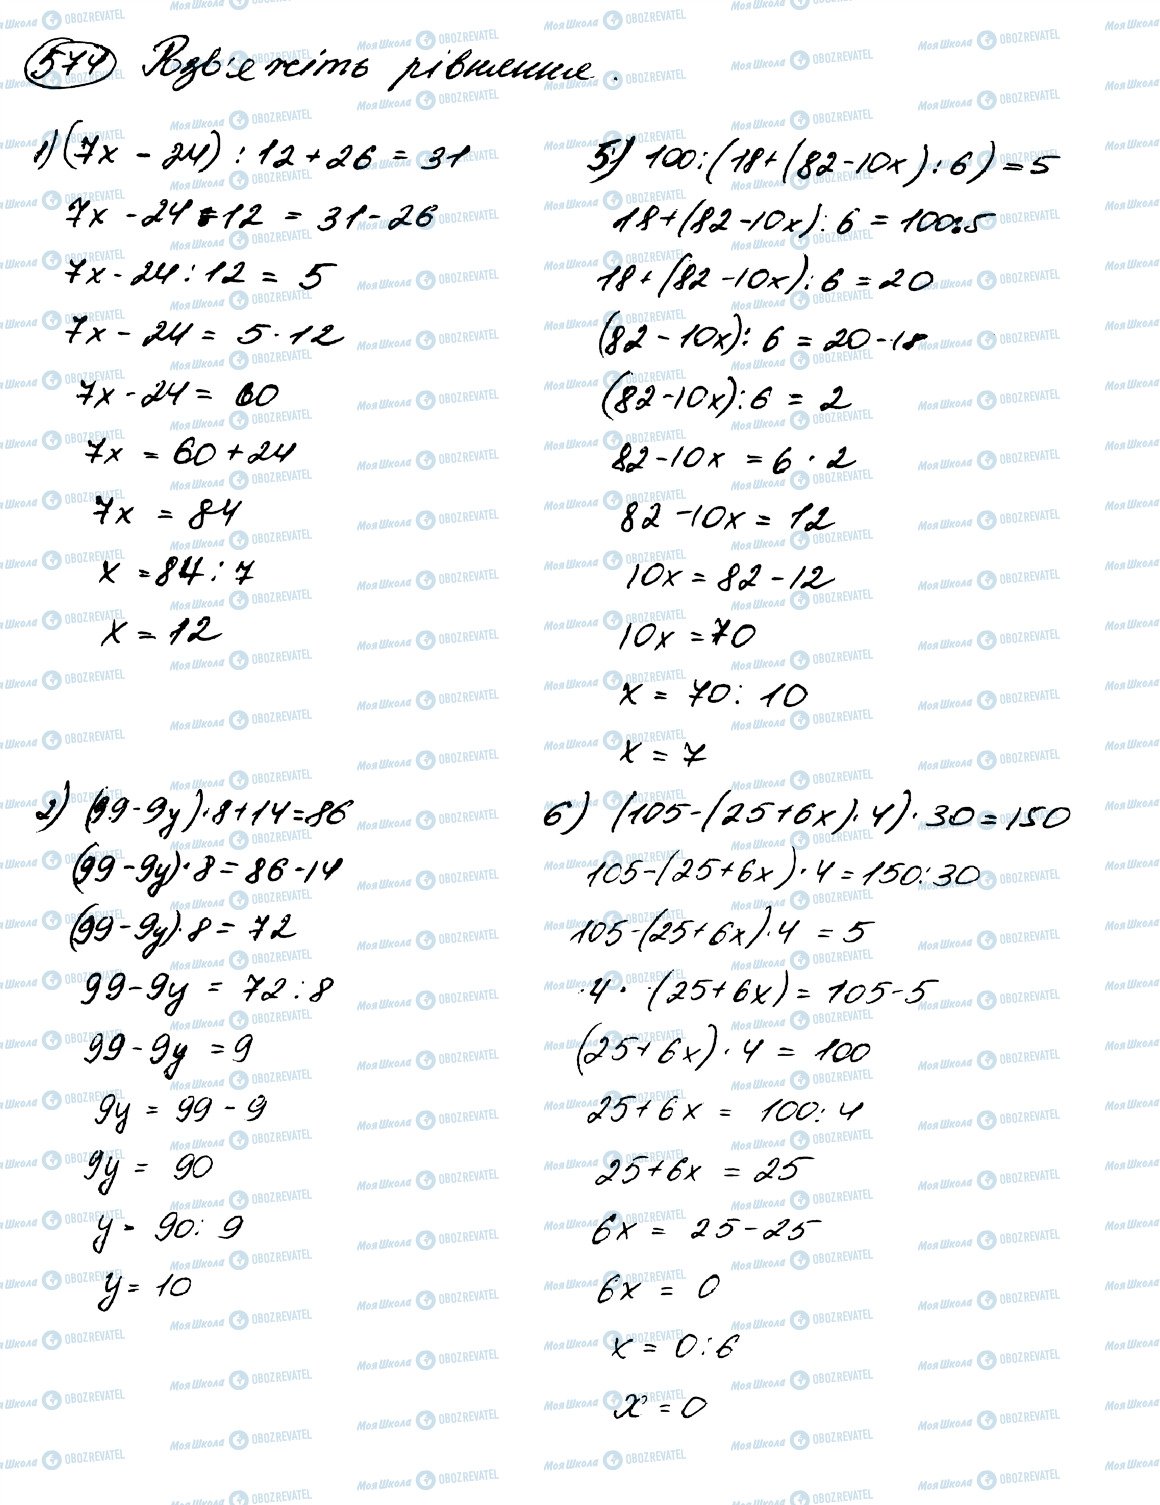 574 Розв'яжіть рівняння.
1) (7x - 24) : 12 + 26 = 31
7x - 24 : 12 = 31 - 26
7x - 24 : 12 = 5
7x - 24 = 5 · 12
7x - 24 = 60
7x = 60 + 24
7x = 84
x = 84 : 7
x = 12
2) (99 - 9y) · 8 + 14 = 86
(99 - 9y) · 8 = 86 - 14
(99 - 9y) · 8 = 72
99 - 9y = 72 : 8
99 - 9y = 9
9y = 99 - 9
9y = 90
y = 90 : 9
y = 10
5) 100 : (18 + (82 - 10x) : 6) = 5
18 + (82 - 10x) : 6 = 100 : 5
18 + (82 - 10x) : 6 = 20
(82 - 10x) : 6 = 20 - 18
(82 - 10x) : 6 = 2
82 - 10x = 6 · 2
82 - 10x = 12
10x = 82 - 12
10x = 70
x = 70 : 10
x = 7
6) (105 - (25 + 6x) · 4) · 30 = 150
105 - (25 + 6x) · 4 = 150 : 30
105 - (25 + 6x) · 4 = 5
4 · (25 + 6x) = 105 - 5
(25 + 6x) · 4 = 100
25 + 6x = 100 : 4
25 + 6x = 25
6x = 25 - 25
6x = 0
x = 0 : 6
x = 0
Моя Школа OBOZREVATEL